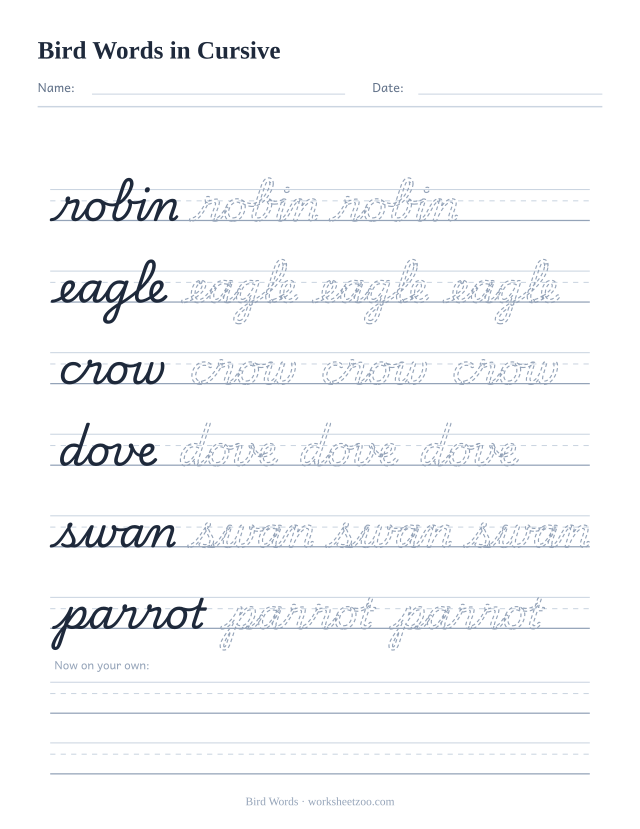 Bird Words in Cursive
Name: Date:
robin robin robin
eagle eagle eagle eagle
crow crow crow crow
dove dove dove dove
swan swan swan swan
parrot parrot parrot
Now on your own:
Bird Words · worksheetzoo.com